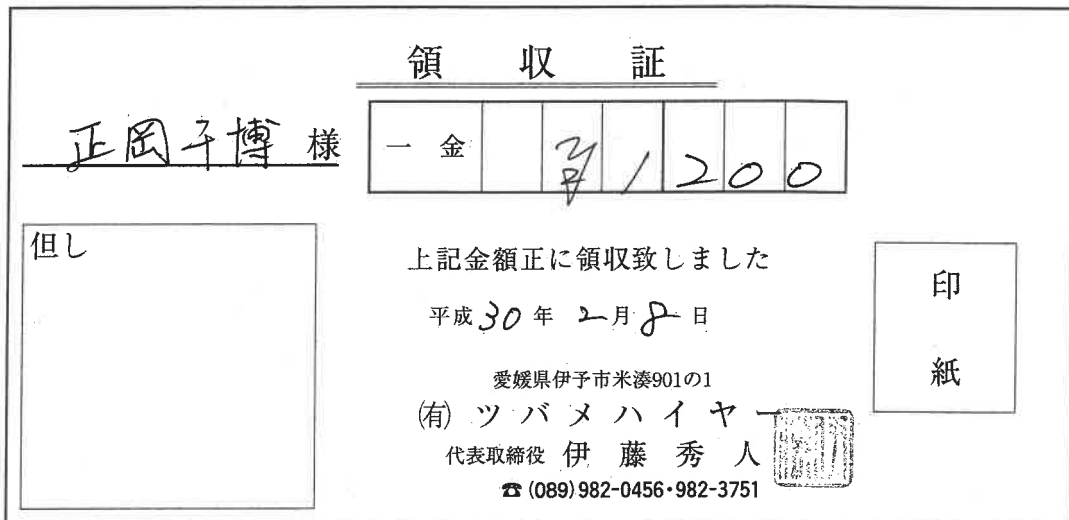 領 収 証
正岡千博 様
一 金 1200
但し
上記金額正に領収致しました
平成30年 2月8日
印
紙
愛媛県伊予市米湊901の1
㈲ ツバメハイヤー
代表取締役 伊藤秀人
☎(089)982-0456・982-3751